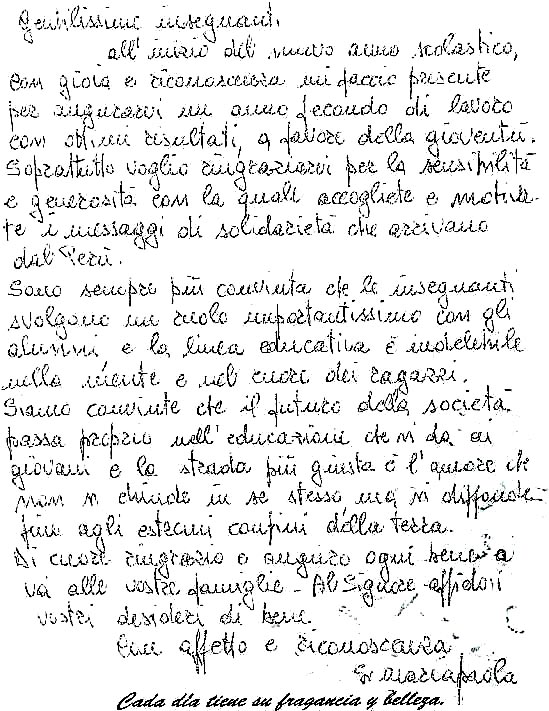 Gentilissime insegnanti
all'inizio del nuovo anno scolastico,
con gioia e riconoscenza mi faccio presente
per augurarvi un anno fecondo di lavoro
con ottimi risultati, a favore della gioventù.
Soprattutto voglio ringraziarvi per la sensibilità
e generosità con la quale accogliete e motiva-
te i messaggi di solidarietà che arrivano
dal Perù.
Sono sempre più convinta che le insegnanti
svolgono un ruolo importantissimo con gli
alunni e la linea educativa è indelebile
nella mente e nel cuore dei ragazzi.
Siamo convinte che il futuro della società
passa proprio nell'educazione che si da ai
giovani e la strada più giusta è l'amore che
non si chiude in se stesso ma si diffonde
fino agli estremi confini della terra.
Di cuore ringrazio e auguro ogni bene a
voi alle vostre famiglie - Al Signore affido i
vostri desideri di bene.
Con affetto e riconoscenza
Sr Mariapaola
Cada día tiene su fragancia y belleza.